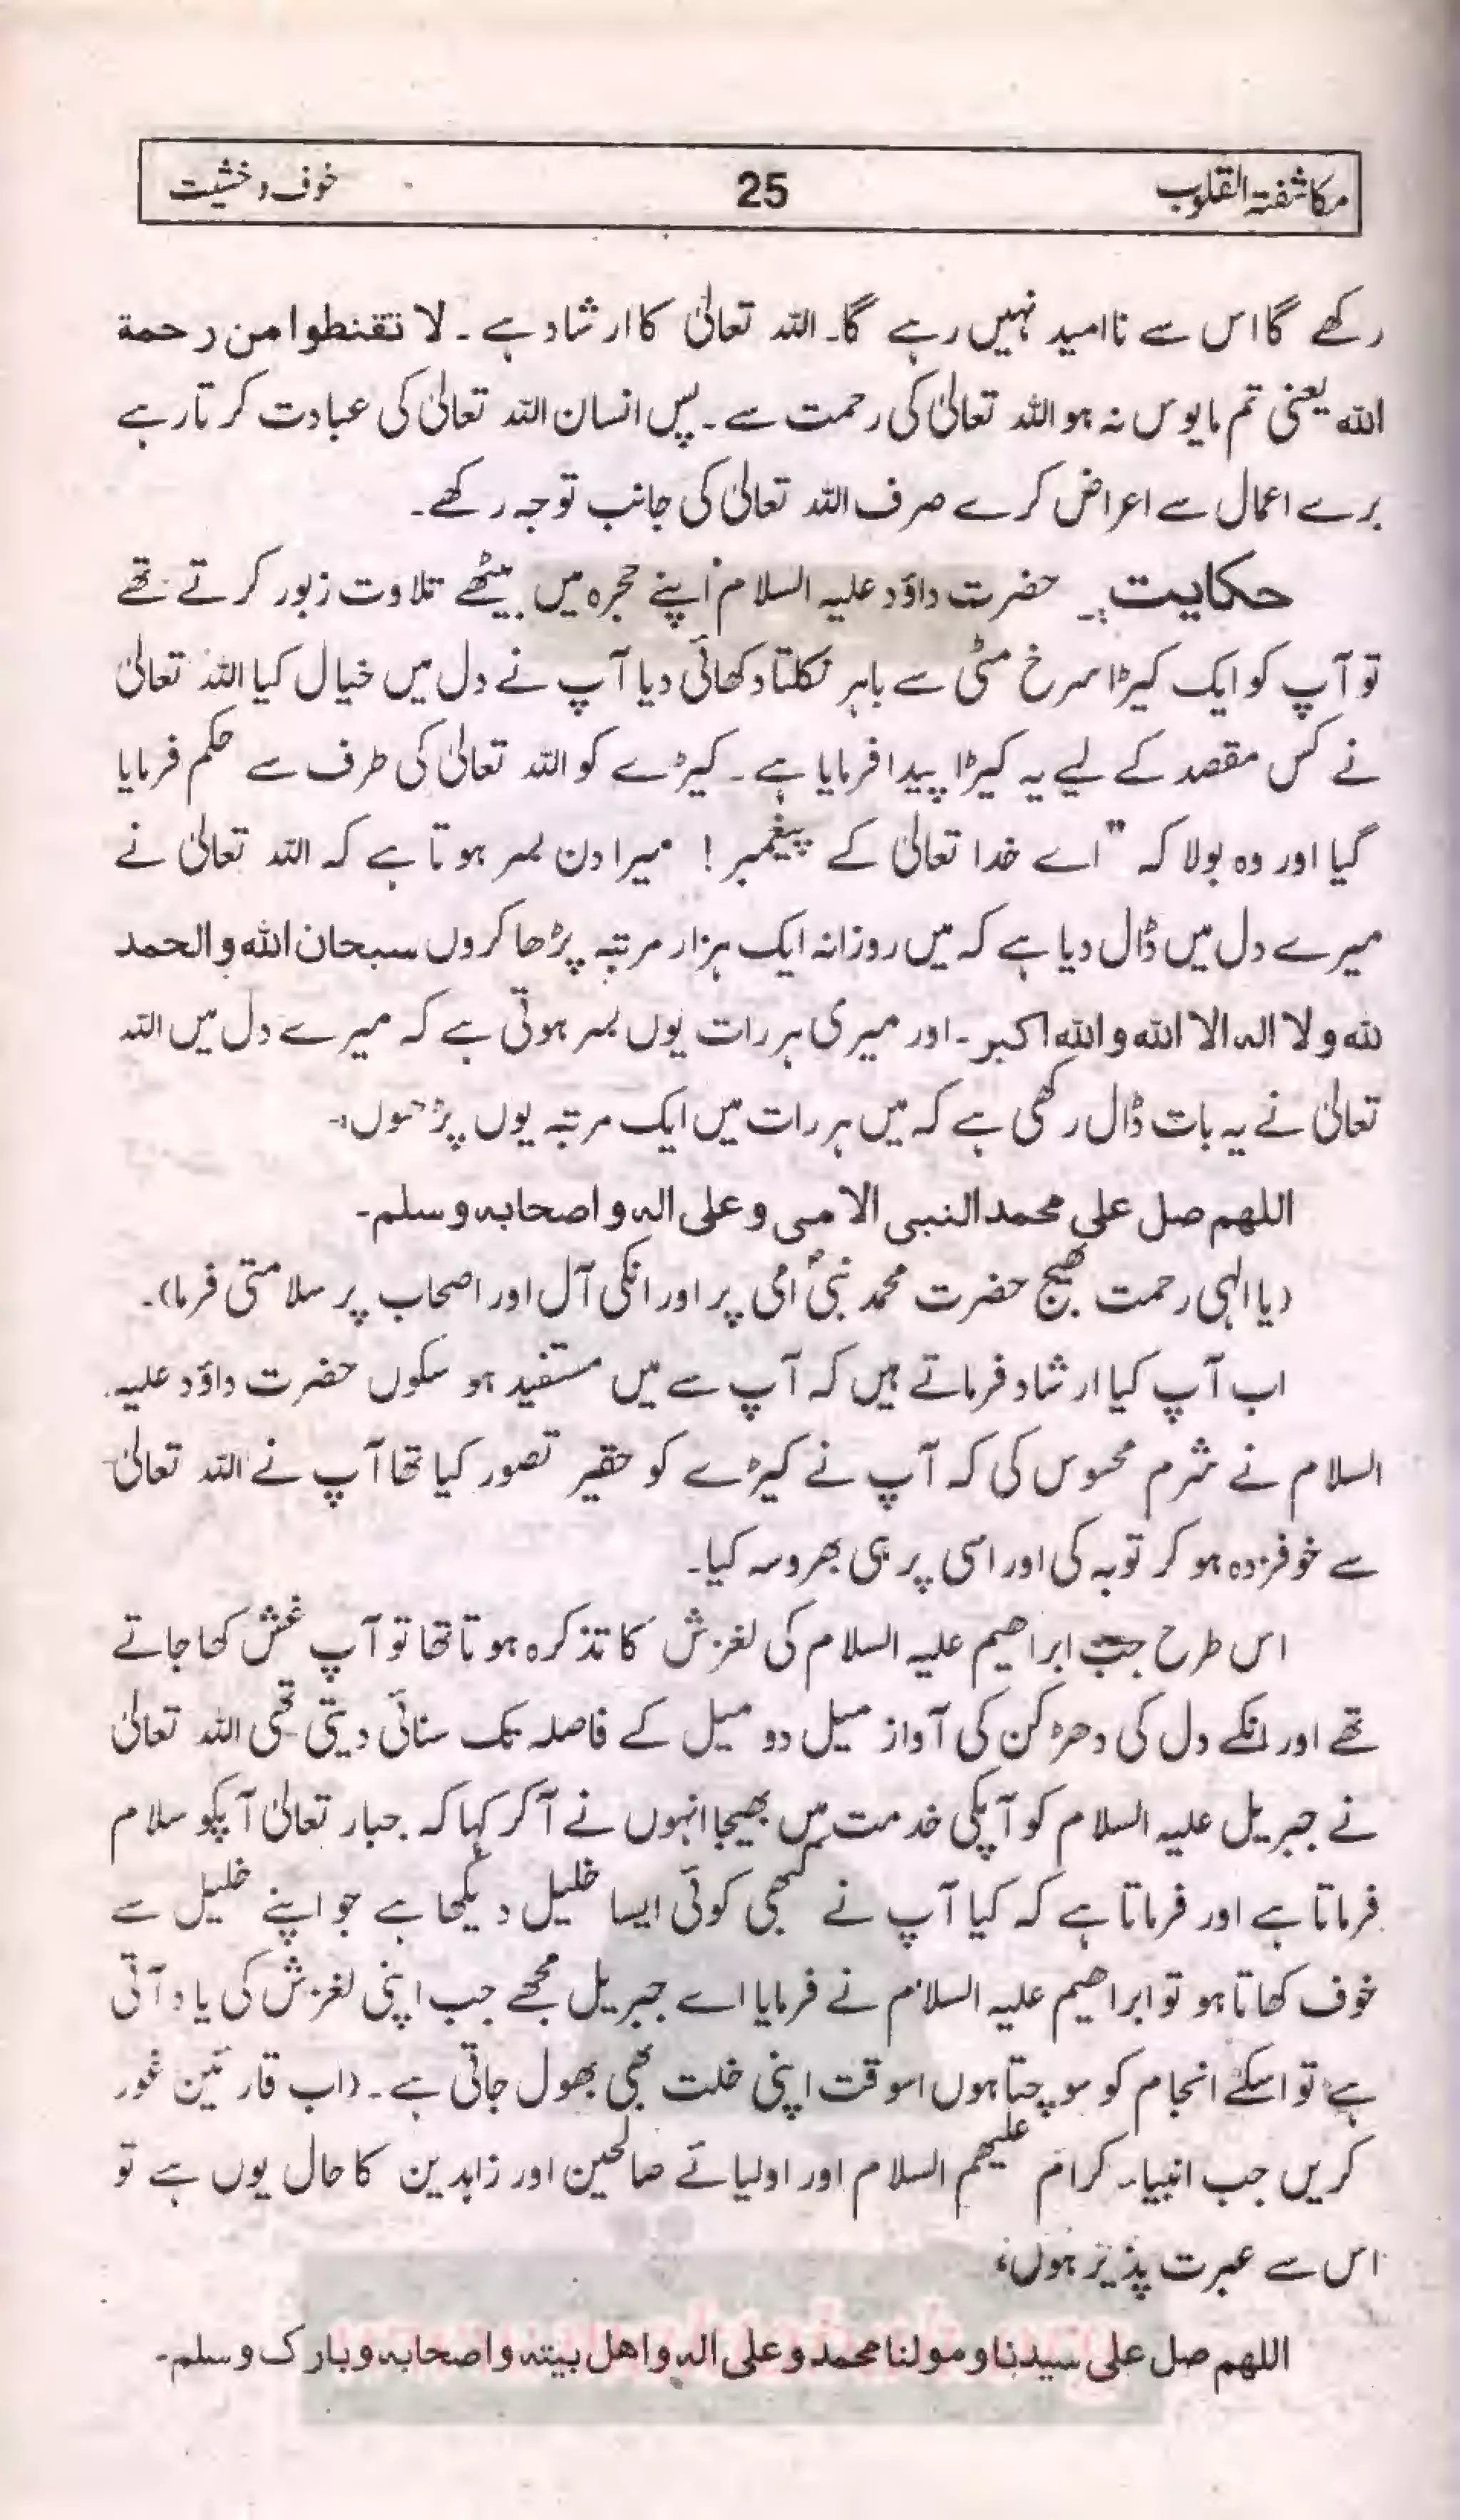 مکاشفتہ القلوب 25 خوف و خشیت
رکھے گا اس سے ناامید نہیں رہے گا۔ اللہ تعالیٰ کا ارشاد ہے۔ لا تقنطوا من رحمة
اللہ یعنی تم مایوس نہ ہو اللہ تعالیٰ کی رحمت سے۔ پس انسان اللہ تعالیٰ کی عبادت کرتا رہے
برے اعمال سے اعراض کرے صرف اللہ تعالیٰ کی جانب توجہ رکھے۔
حکایت :۔ حضرت داؤد علیہ السلام اپنے حجرہ میں بیٹھے تلاوت زبور کرتے تھے
تو آپ کو ایک کیڑا سرخ مٹی سے باہر نکلتا دکھائی دیا آپ نے دل میں خیال کیا اللہ تعالیٰ
نے کس مقصد کے لیے یہ کیڑا پیدا فرمایا ہے۔ کیڑے کو اللہ تعالیٰ کی طرف سے حکم فرمایا
گیا اور وہ بولا کہ "اے خدا تعالیٰ کے پیغمبر! میرا دن بسر ہوتا ہے کہ اللہ تعالیٰ نے
میرے دل میں ڈال دیا ہے کہ میں روزانہ ایک ہزار مرتبہ پڑھا کروں سبحان اللہ والحمد
للہ ولا الہ الا اللہ واللہ اکبر۔ اور میری ہر رات یوں بسر ہوتی ہے کہ میرے دل میں اللہ
تعالیٰ نے یہ بات ڈال رکھی ہے کہ میں ہر رات میں ایک مرتبہ یوں پڑھوں،۔
اللهم صل علی محمد النبی الامی وعلی الہ واصحابہ وسلم۔
(یا الہی رحمت بھیج حضرت محمد نبیؐ امی پر اور انکی آل اور اصحاب پر سلامتی فرما)۔
اب آپ کیا ارشاد فرماتے ہیں کہ آپ سے میں مستفید ہو سکوں حضرت داؤد علیہ
السلام نے شرم محسوس کی کہ آپ نے کیڑے کو حقیر تصور کیا تھا آپ نے اللہ تعالیٰ
سے خوفزدہ ہو کر توبہ کی اور اسی پر ہی بھروسہ کیا۔
اس طرح جب ابراھیم علیہ السلام کی لغزش کا تذکرہ ہوتا تھا تو آپ غش کھا جاتے
تھے اور انکے دل کی دھڑکن کی آواز میل دو میل کے فاصلہ تک سنائی دیتی تھی اللہ تعالیٰ
نے جبریل علیہ السلام کو آپکی خدمت میں بھیجا انہوں نے آ کر کہا کہ جبار تعالیٰ آپکو سلام
فرماتا ہے اور فرماتا ہے کہ کیا آپ نے کبھی کوئی ایسا خلیل دیکھا ہے جو اپنے خلیل سے
خوف کھاتا ہو تو ابراھیم علیہ السلام نے فرمایا اے جبریل مجھے جب اپنی لغزش کی یاد آتی
ہے تو اسکے انجام کو سوچتا ہوں اسوقت اپنی خلت بھی بھول جاتی ہے۔ (اب قارئین غور
کریں جب انبیاء کرام علیھم السلام اور اولیائے صالحین اور زاہدین کا حال یوں ہے تو
اس سے عبرت پذیر ہوں،
اللهم صل علی سیدنا ومولنا محمد وعلی الہ واھل بیتہ واصحابہ وبارک وسلم۔